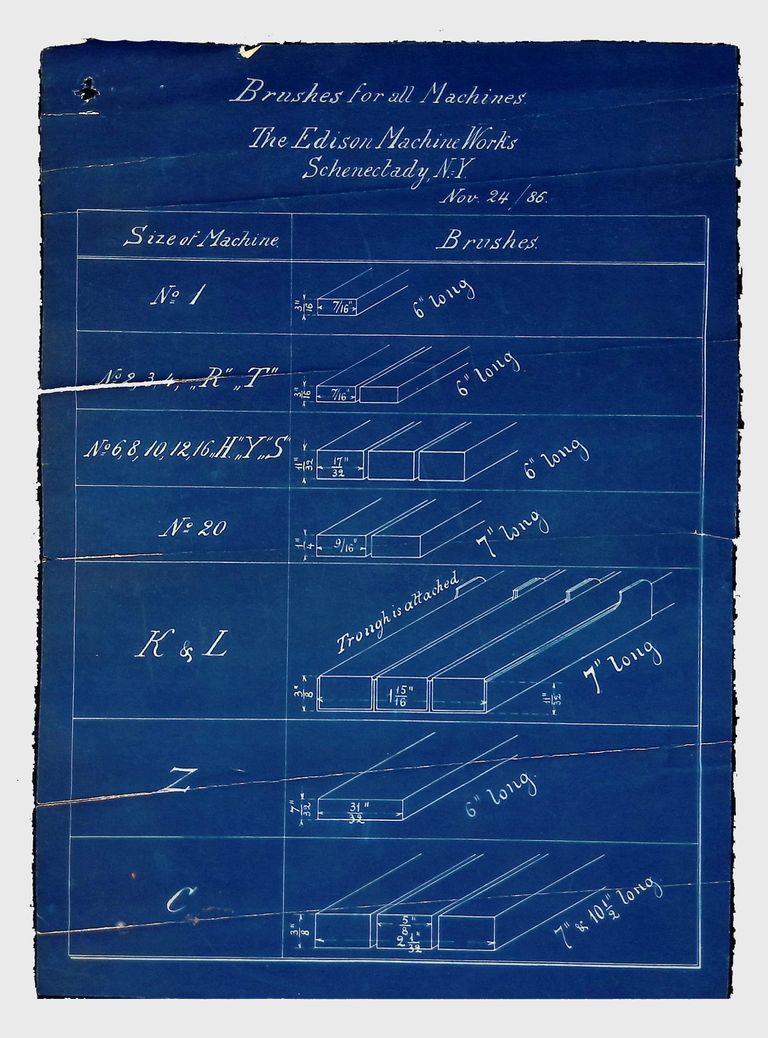 Brushes for all Machines.
The Edison Machine Works
Schenectady, N.Y.
Nov. 24 / 86.
Size of Machine. Brushes.
No 1 3/16" 7/16" 6" long
No 2, 3, 4, „R" „T" 3/16" 7/16" 6" long
No 6, 8, 10, 12, 16 „H" „Y" „S" 11/32" 17/32" 6" long
No 20 1/4" 9/16" 7" long
Trough is attached
K & L 3/8" 1 15/16" 11/32" 7" long
Z 7/32" 31/32" 6" long.
C 3/8" 5/8" 2 1/32" 7" & 10 1/2" long